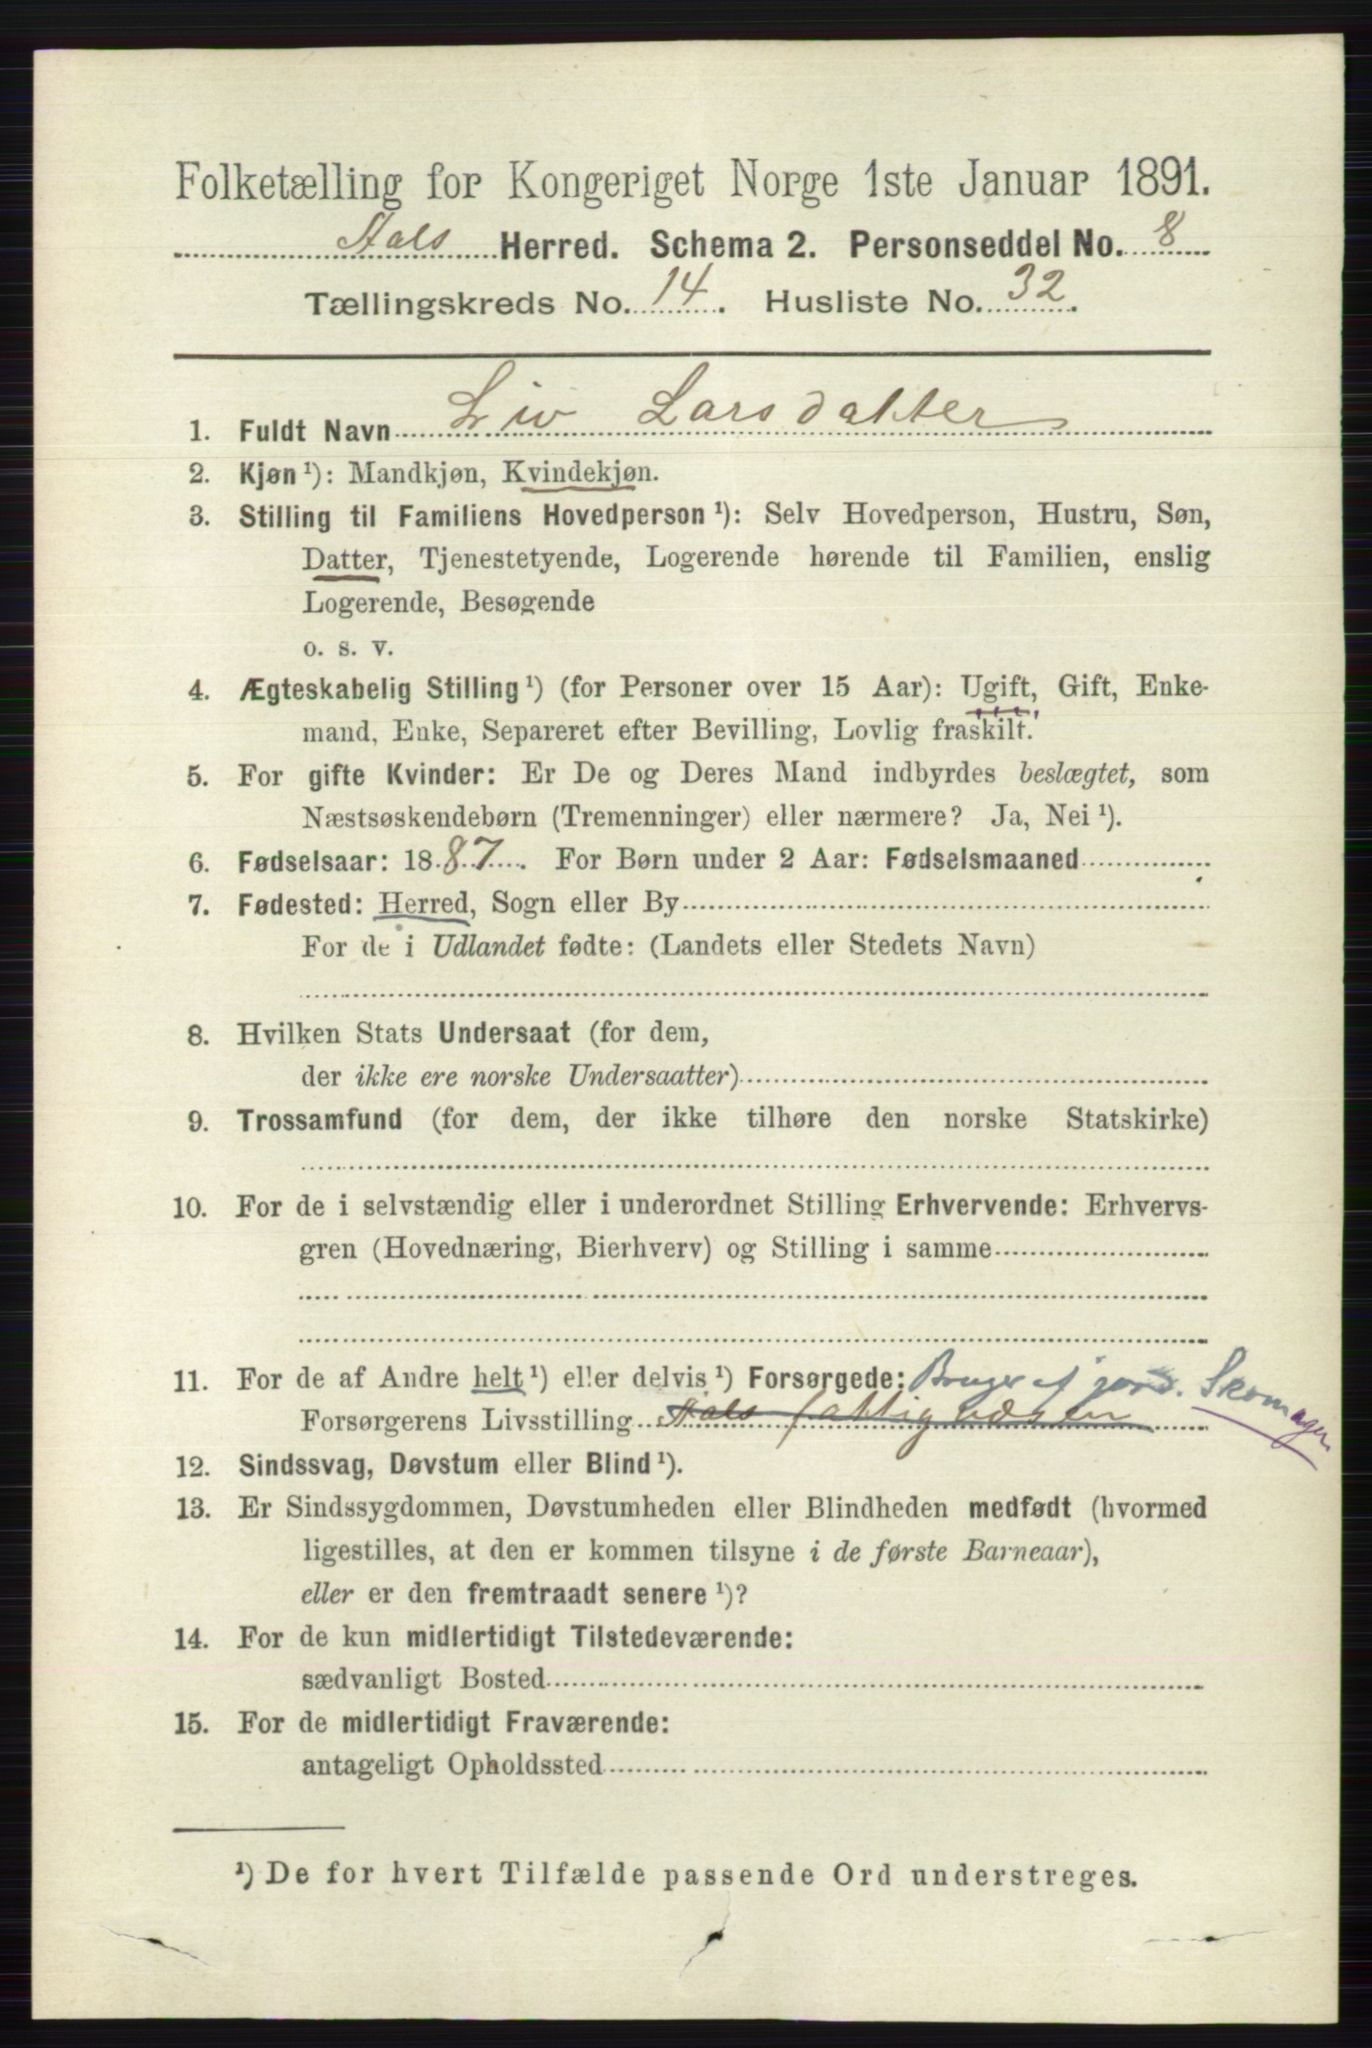 Folketælling for Kongeriget Norge 1ste Januar 1891.
Aals Herred. Schema 2. Personseddel No. 8
Tællingskreds No. 14. Husliste No. 32.
1. Fuldt Navn Liv Larsdatter
2. Kjøn¹): Mandkjøn, Kvindekjøn.
3. Stilling til Familiens Hovedperson¹): Selv Hovedperson, Hustru, Søn,
Datter, Tjenestetyende, Logerende hørende til Familien, enslig
Logerende, Besøgende
o. s. v.
4. Ægteskabelig Stilling¹) (for Personer over 15 Aar): Ugift, Gift, Enke-
mand, Enke, Separeret efter Bevilling, Lovlig fraskilt.
5. For gifte Kvinder: Er De og Deres Mand indbyrdes beslægtet, som
Næstsøskendebørn (Tremenninger) eller nærmere? Ja, Nei¹).
6. Fødselsaar: 1887. For Børn under 2 Aar: Fødselsmaaned
7. Fødested: Herred, Sogn eller By
For de i Udlandet fødte: (Landets eller Stedets Navn)
8. Hvilken Stats Undersaat (for dem,
der ikke ere norske Undersaatter)
9. Trossamfund (for dem, der ikke tilhøre den norske Statskirke)
10. For de i selvstændig eller i underordnet Stilling Erhvervende: Erhvervs-
gren (Hovednæring, Bierhverv) og Stilling i samme
11. For de af Andre helt¹) eller delvis¹) Forsørgede: Bruger af jord. Skomager
Forsørgerens Livsstilling Aals fattigvæsen
12. Sindssvag, Døvstum eller Blind¹).
13. Er Sindssygdommen, Døvstumheden eller Blindheden medfødt (hvormed
ligestilles, at den er kommen tilsyne i de første Barneaar),
eller er den fremtraadt senere¹)?
14. For de kun midlertidigt Tilstedeværende:
sædvanligt Bosted
15. For de midlertidigt Fraværende:
antageligt Opholdssted
¹) De for hvert Tilfælde passende Ord understreges.